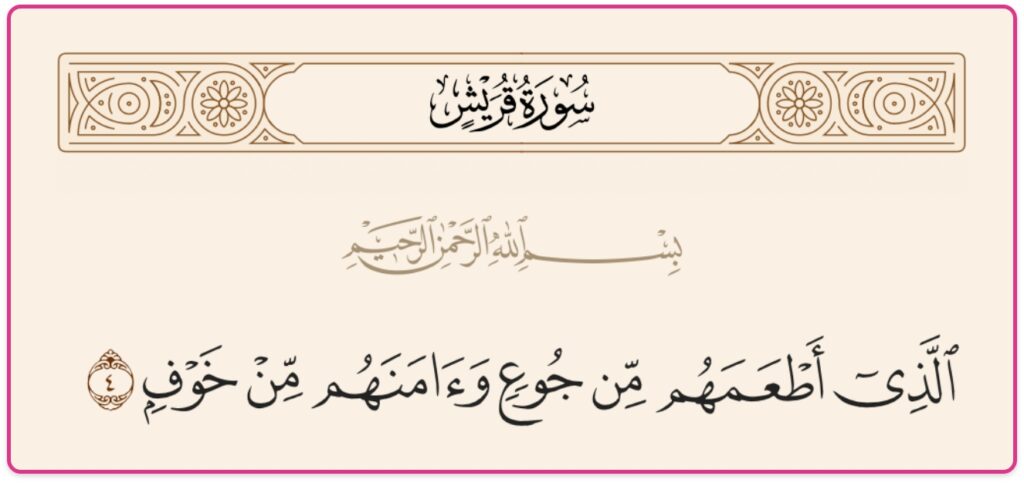 سُورَةُ قُرَيْشٍ
بِسْمِ ٱللَّهِ ٱلرَّحْمَٰنِ ٱلرَّحِيمِ
ٱلَّذِىٓ أَطْعَمَهُم مِّن جُوعٍ وَءَامَنَهُم مِّنْ خَوْفٍۭ ٤